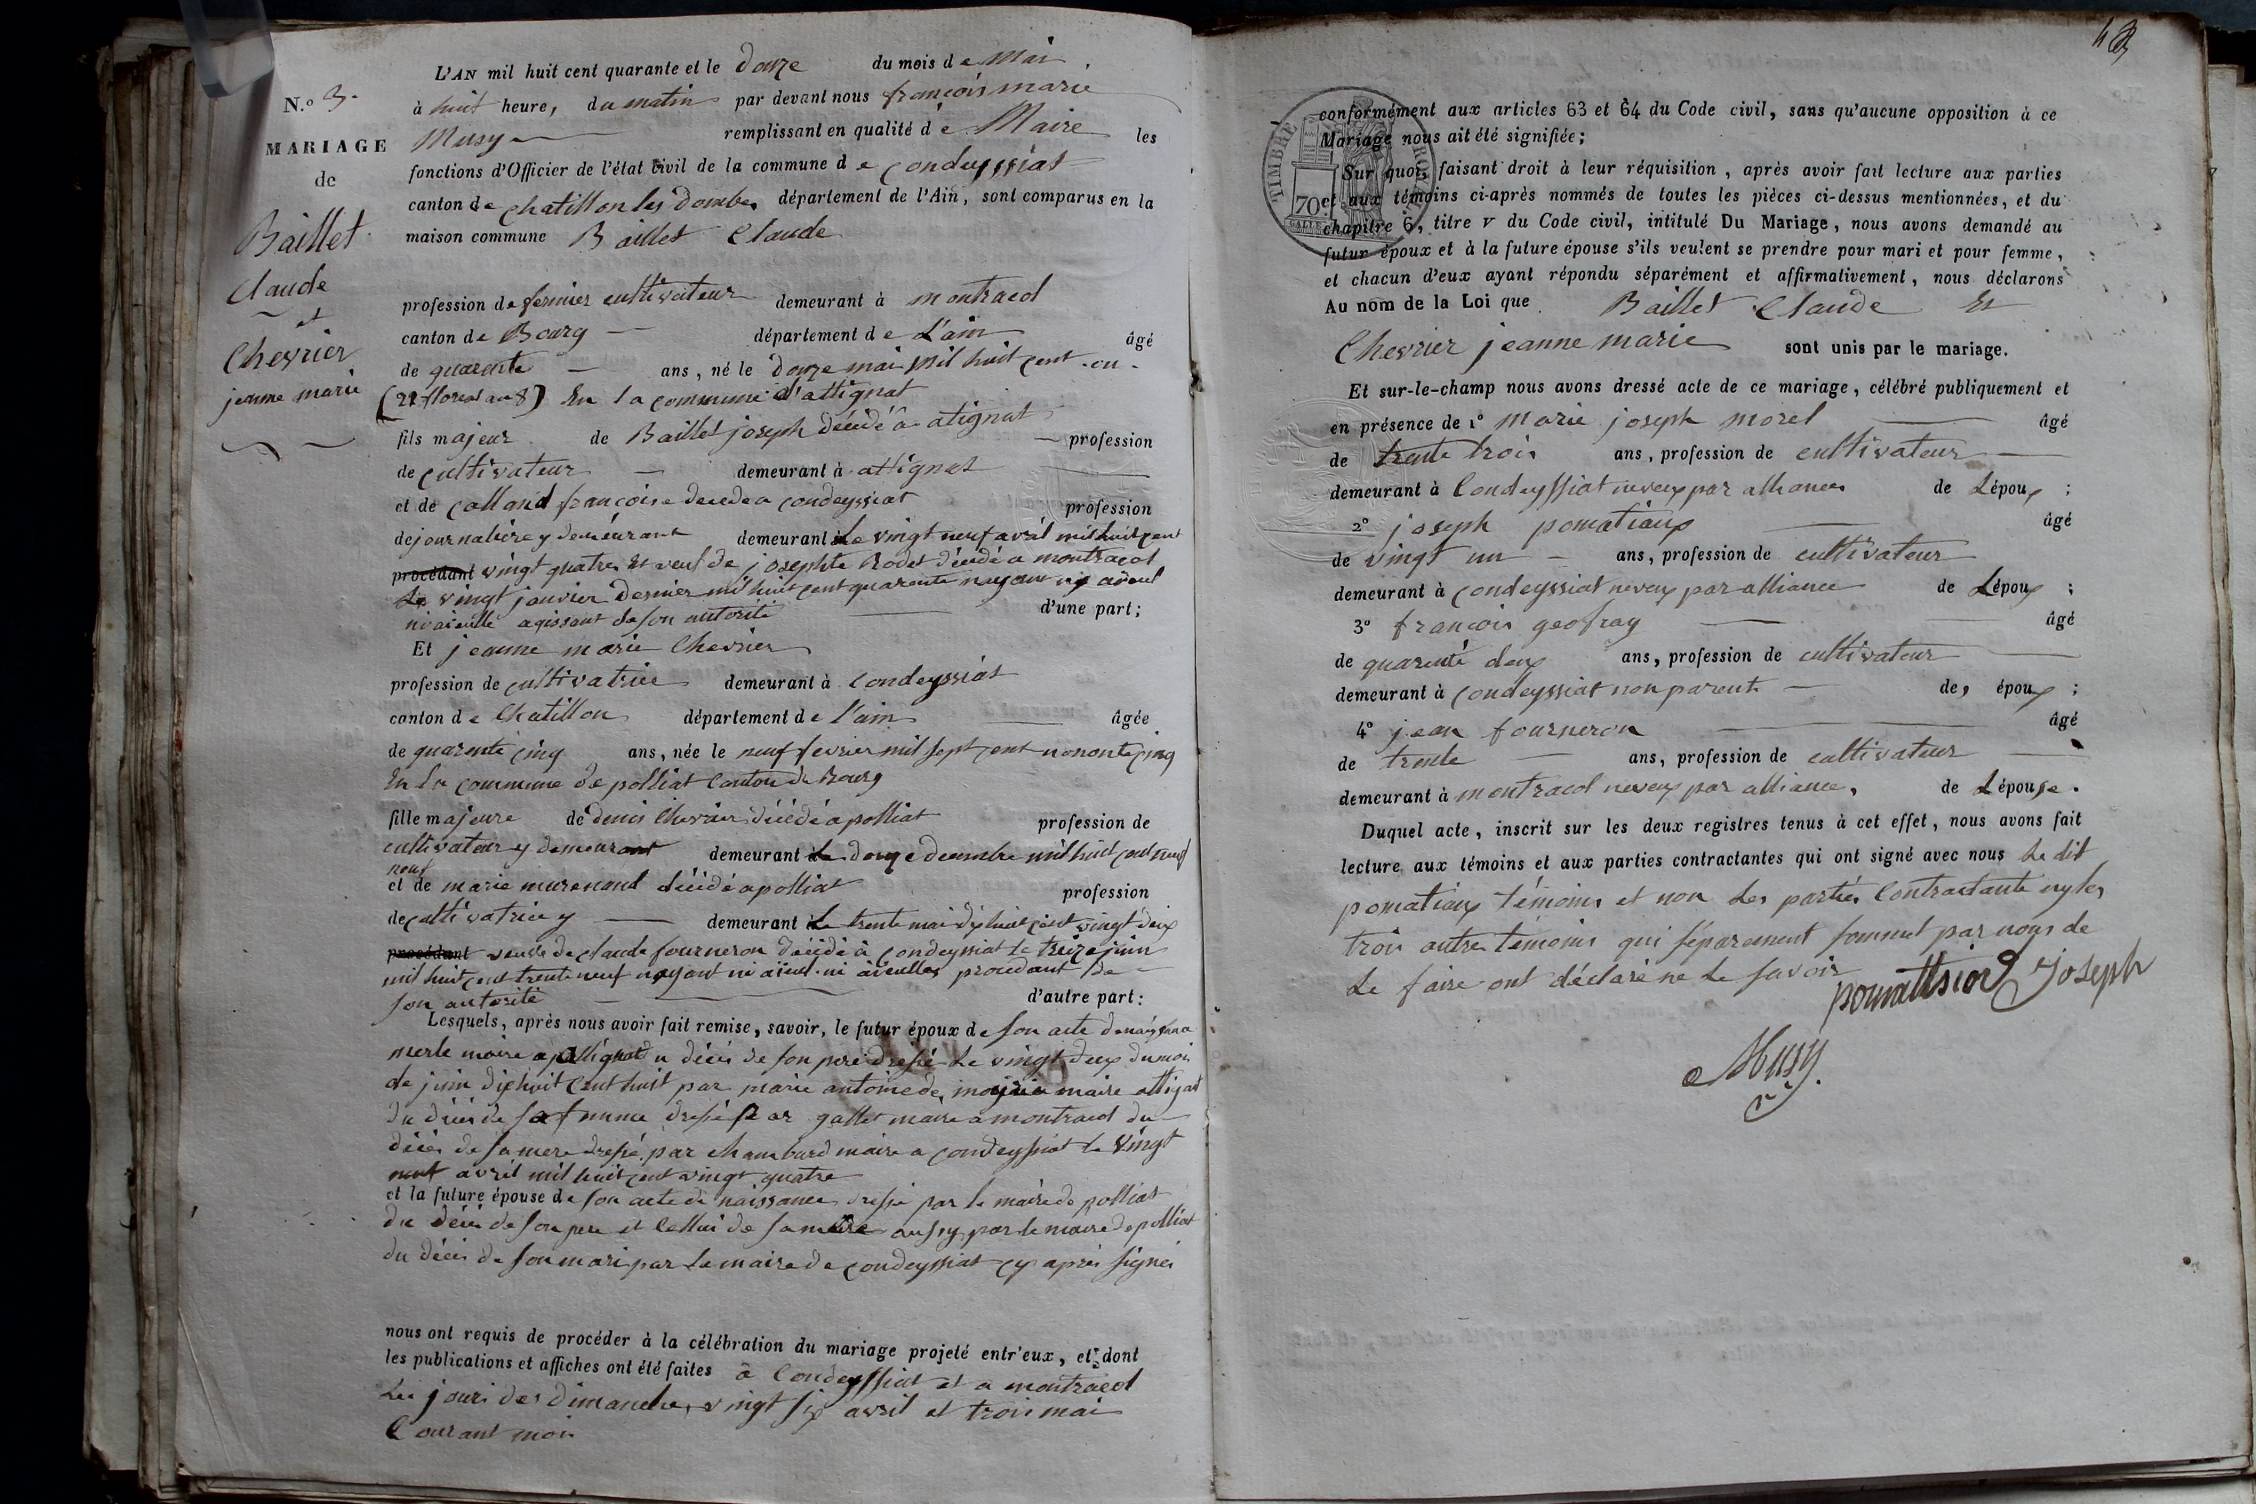 L'AN mil huit cent quarante et le douze du mois de Mai
à huit heure, du matin par devant nous françois marie
Musy remplissant en qualité de Maire les
fonctions d'Officier de l'état civil de la commune de Condeyssiat
canton de chatillon les dombes département de l'Ain, sont comparus en la
maison commune Baillet Claude
N.o 3.
MARIAGE
de
Baillet
Claude
et
Chevrier
jeanne marie
profession de fermier cultivateur demeurant à montracol
canton de Bourg département de L'ain âgé
de quarante ans, né le douze mai mil huit cent en
(22 floreal an 8) En la commune d'attignat
fils majeur de Baillet joseph décédé à atignat profession
de cultivateur demeurant à attignat
et de Calland françoise decedé a condeyssiat profession
de journalière y demeurant demeurant Le vingt neuf avril mil huit cent
procédant vingt quatre Et veuf de josephte Rodet décédé a montracol
Le vingt janvier dernier mil huit cent quarante nayant ny aieul
ni aieulle agissant de son autorité d'une part;
Et jeanne marie Chevrier
profession de cultivatrice demeurant à Condeyssiat
canton de Chatillon département de l'ain âgée
de quarante cinq ans, née le neuf fevrier mil sept cent nonante cinq
En la commune de polliat Canton de Bourg
fille majeure de denis Chevrier décédé a polliat profession de
cultivateur y demeurant demeurant Le douze decembre mil huit cent neuf
neuf
et de marie décédé a polliat profession
de cultivatrice y demeurant Le trente mai dixhuit cent vingt deux
procédant veuve de claude fourneron décédé à Condeyssiat le treize juin
mil huit cent trente neuf nayant ni aïeul ni aieulles procedant de
son autorité d'autre part:
Lesquels, après nous avoir fait remise, savoir, le futur époux de son acte de naissance
merle maire a attignat du décès de son père dressé Le vingt deux du mois
de juin dixhuit Cent huit par marie antoine de maire attignat
du décès de sa femme dressé par gallet maire a montracol du
décès de sa mere dressé par chambard maire a condeyssiat le vingt
neuf avril mil huit cent vingt quatre
et la future épouse de son acte de naissance dressé par le maire de polliat
du décès de son pere et Cellui de sa mère aussy par le maire de polliat
du décès de son mari par le maire de condeyssiat cy après signé
nous ont requis de procéder à la célébration du mariage projeté entr'eux, et dont
les publications et affiches ont été faites à Condeyssiat et a montracol
Les jours des dimanches vingt six avril et trois mai
Courant mois
conformément aux articles 63 et 64 du Code civil, sans qu'aucune opposition à ce
Mariage nous ait été signifiée;
Sur quoi, faisant droit à leur réquisition, après avoir fait lecture aux parties
et aux témoins ci-après nommés de toutes les pièces ci-dessus mentionnées, et du
chapitre 6, titre v du Code civil, intitulé Du Mariage, nous avons demandé au
futur époux et à la future épouse s'ils veulent se prendre pour mari et pour femme,
et chacun d'eux ayant répondu séparément et affirmativement, nous déclarons
Au nom de la Loi que Baillet Claude Et
Chevrier jeanne marie sont unis par le mariage.
Et sur-le-champ nous avons dressé acte de ce mariage, célébré publiquement et
en présence de 1o marie joseph morel âgé
de trente trois ans, profession de cultivateur
demeurant à Condeyssiat neveux par alliance de Lépoux ;
2o joseph pomatiaux âgé
de vingt un ans, profession de cultivateur
demeurant à condeyssiat neveux par alliance de Lépoux ;
3o françois geofray âgé
de quarente deux ans, profession de cultivateur
demeurant à condeyssiat non parent de, époux ;
4o jean fourneron âgé
de trente ans, profession de cultivateur
demeurant à montracol neveux par alliance, de Lépouse.
Duquel acte, inscrit sur les deux registres tenus à cet effet, nous avons fait
lecture aux témoins et aux parties contractantes qui ont signé avec nous Le dit
pomatiaux témoins et non Les parties Contractante ny les
trois autres temoins qui séparement sommet par nous de
Le faire ont déclaré ne Le savoir
pomattsiod Joseph
Musy
TIMBRE ROYAL
70c